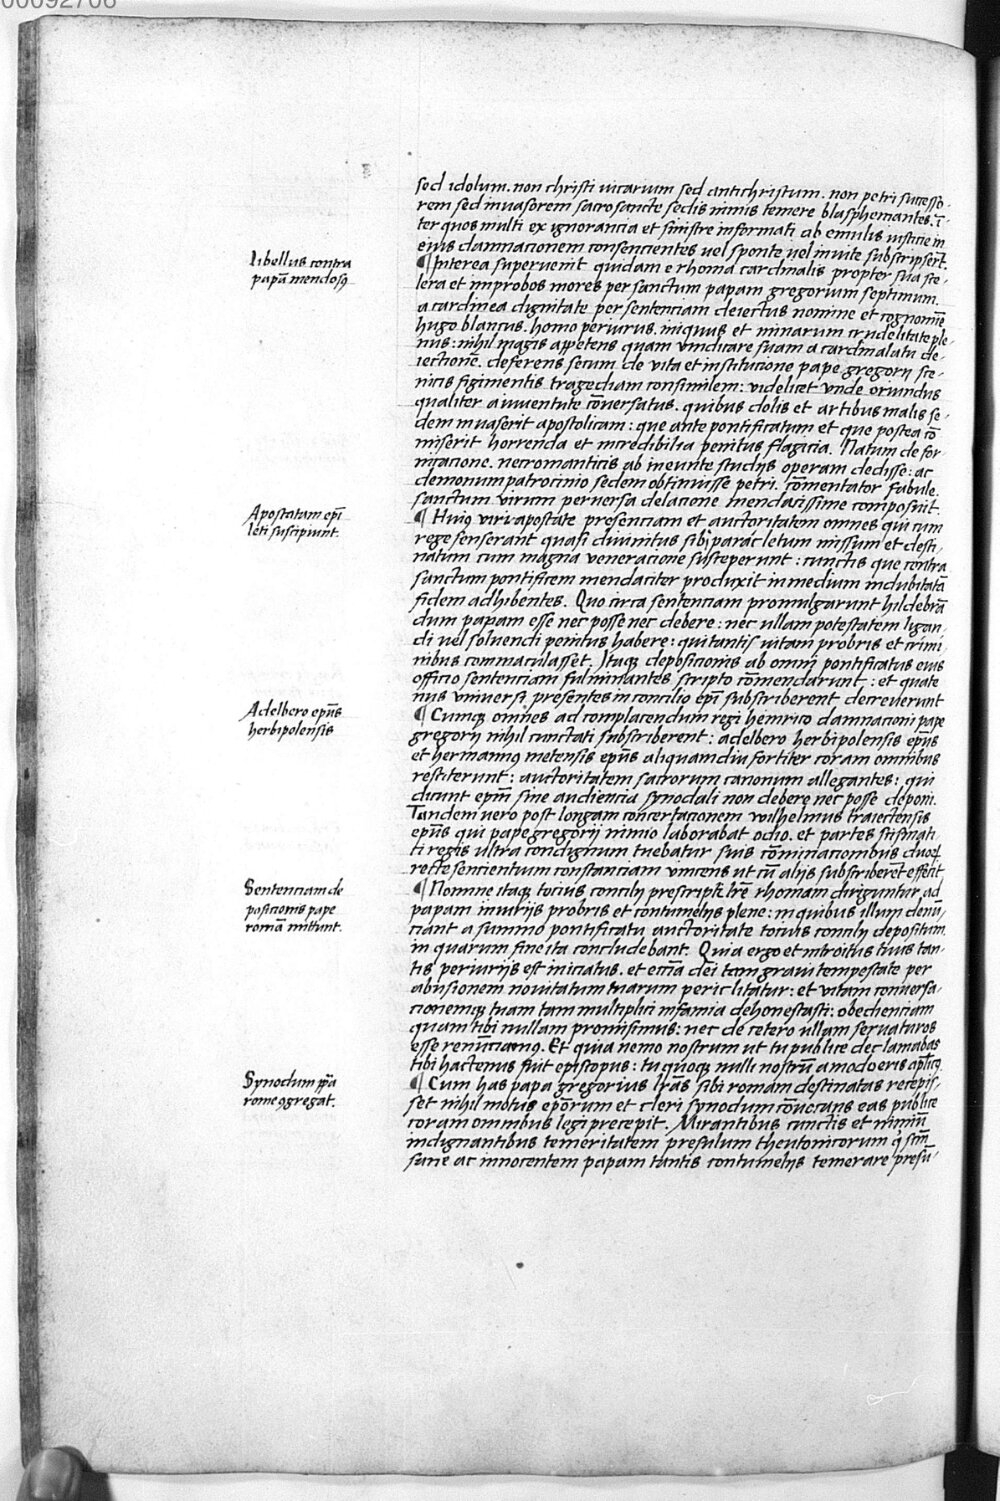 00092706
sed idolum. non christi uicarium sed antichristum. non petri successo-
rem sed inuasorem sacrosancte sedis nimis temere blasphemantes. ī-
ter quos multi ex ignorancia et sinistre informati ab emulis iusticie in
eius damnacionem consencientes uel sponte uel inuite subscripserūt.
Libellus contra
papā mendosꝯ
¶ Interea superuenit quidam e rhoma cardinalis propter sua sce-
lera et improbos mores per sanctum papam gregorium septimum.
a cardinea dignitate per sentenciam deiectus nomine et cognomīe
hugo blancus. homo periurus. iniquus et minarum crudelitate ple-
nus: nihil magis appetens quam vindicare suam a cardinalatu de-
iectionē. deferens secum de vita et institucione pape gregorij sce-
nicis figimentis tragediam consimilem: videlicet vnde oriundus
qualiter a iuuentute cōuersatus. quibus dolis et artibus malis se-
dem inuaserit apostolicam: que ante pontificatum et que postea cō
miserit horrenda et incredibilia penitus flagicia. Natum de for-
nicacione. necromanticis ab ineunte studijs operam dedisse: ac
demonum patrocinio sedem obtinuisse petri. cōmentator fabule.
sanctum virum peruersa delacione mendacissime composuit.
Apostatam epī
leti suscipiunt.
¶ Huiꝯ viri apostate presenciam et auctoritatem omnes qui cum
rege senserant quasi diuinitus sibi paracletum missum et desti-
natum cum magna veneracione susceperunt: cunctis que contra
sanctum pontificem mendaciter produxit in medium indubitatā
fidem adhibentes. Quo circa sentenciam promulgarunt hildebrā
dum papam esse nec posse nec debere: nec ullam potestatem ligan-
di uel soluendi penitus habere: qui tantis uitam probris et crimi
nibus commaculasset. Itaqꝫ deposicionis ab omni pontificatus eius
officio sentenciam fulminantes scripto cōmendarunt: et quate
nus vniuersi presentes in concilio epī subscriberent decreuerunt
Adelbero epūs
herbipolensis
¶ Cumqꝫ omnes ad complacendum regi heinrico damnacioni pape
gregorij nihil cunctati subscriberent: adelbero herbipolensis epūs
et hermannꝯ metensis epūs aliquamdiu fortiter coram omnibus
restiterunt: auctoritatem sacrorum canonum allegantes: qui
dicunt epūm sine audiencia synodali non debere nec posse deponi.
Tandem uero post longam concertacionem wilhelmus traiectensis
epūs qui pape gregorij nimio laborabat odio. et partes scismati-
ti regis ultra condignum tuebatur suis cōminacionibus duoꝝ
recte sencientium constanciam vincens ut cū alijs subscriberēt effecit.
Sentenciam de
posicionis pape
romā mittunt.
¶ Nomine itaqꝫ tocius concilij prescripti lr̄e rhomam diriguntur ad
papam iniurijs probris et contumelijs plene: in quibus illum denū-
ciant a summo pontificatu auctoritate tocius concilij depositum.
in quarum fine ita concludebant. Quia ergo et introitus tuus tan-
tis periurijs est iniciatus. et eccīa dei tam graui tempestate per
abusionem nouitatum tuarum periclitatur: et vitam conuersa-
cionemqꝫ tuam tam multiplici infamia dehonestasti: obedienciam
quam tibi nullam promisimus: nec de cetero ullam seruaturos
esse renūciamꝯ. Et quia nemo nostrum ut tu publice declamabas
tibi hactenus fuit episcopus: tu quoqꝫ nulli nostrū amodo eris aplicꝯ
Synodum ppā
rome ꝯgregat.
¶ Cum has papa gregorius lr̄as sibi romam destinatas recepis-
set nihil motus epōrum et cleri synodum cōuocans eas publice
coram omnibus legi precepit. Mirantibus cunctis et nimiū
indignantibus temeritatem presulum theutonicorum ꝙ scm̄
sane ac innocentem papam tantis contumelijs temerare presū-